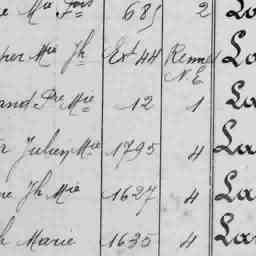 Mie Fois 685 2 Lo
Mie Jh Ext 44 Rennes La
N.E
and Pre Mie 12 1 La
Julien Mie 1795 4 La
Jh Mie 1627 4 La
h Marie 1635 4 La